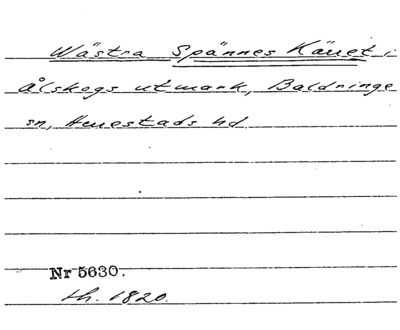 Wästra Spännes Käret i
Ålskogs utmark, Baldringe
sn, Herrestads hd
Nr 5630.
th. 1820.